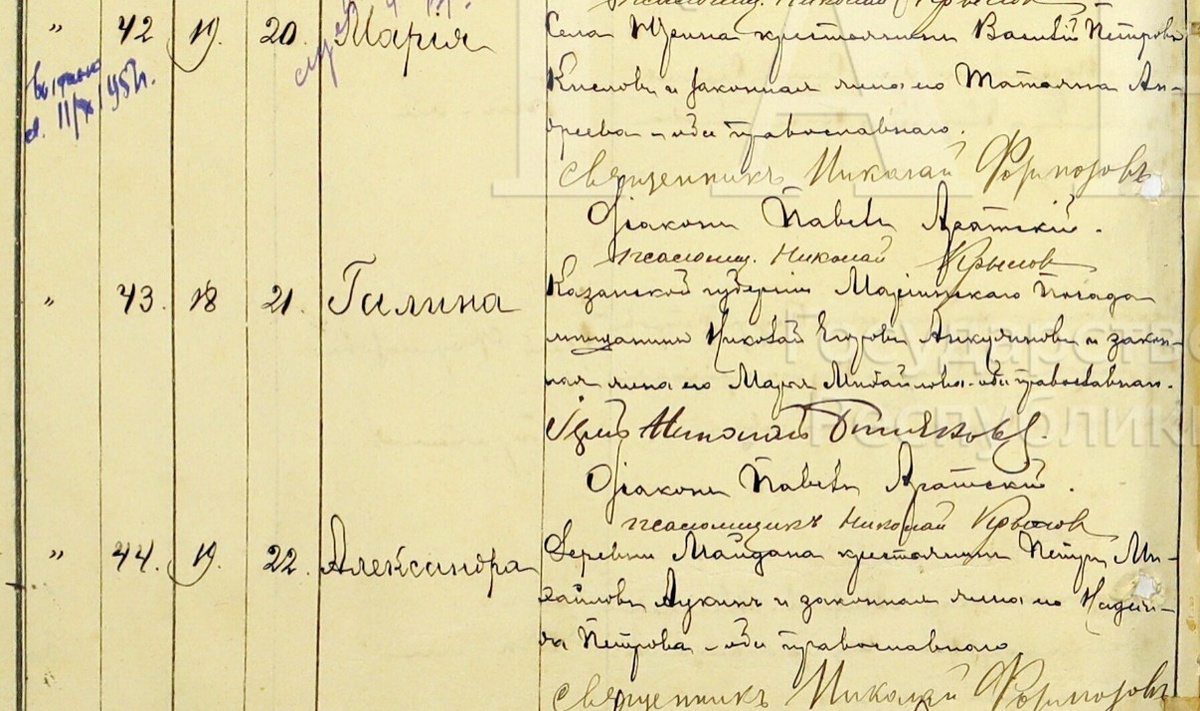 псаломщ. Николай Крылов
" 42 19. 20. Марія Села крестьянинъ Василій Петровъ
Кисловъ и законная жена его Татьяна Ан-
дреева - оба православнаго.
Священникъ Николай Формозовъ
Діаконъ Павелъ Агатскій.
псаломщ. Николай Крылов
" 43. 18 21. Галина Казанской губерніи Маріинскаго Посада
мѣщанинъ Николай Егоровъ и закон-
ная жена его Марія Михайлова - оба православнаго.
Іерей Николай
Діаконъ Павелъ Агатскій.
псаломщикъ Николай Крылов
" 44. 19. 22. Александра Деревни Майдана крестьянинъ Петръ Ми-
хайловъ Лукинъ и законная жена его Надеж-
да Петрова - оба православнаго
Священникъ Николай Формозовъ
II/X 95 г.
Государство
Республики